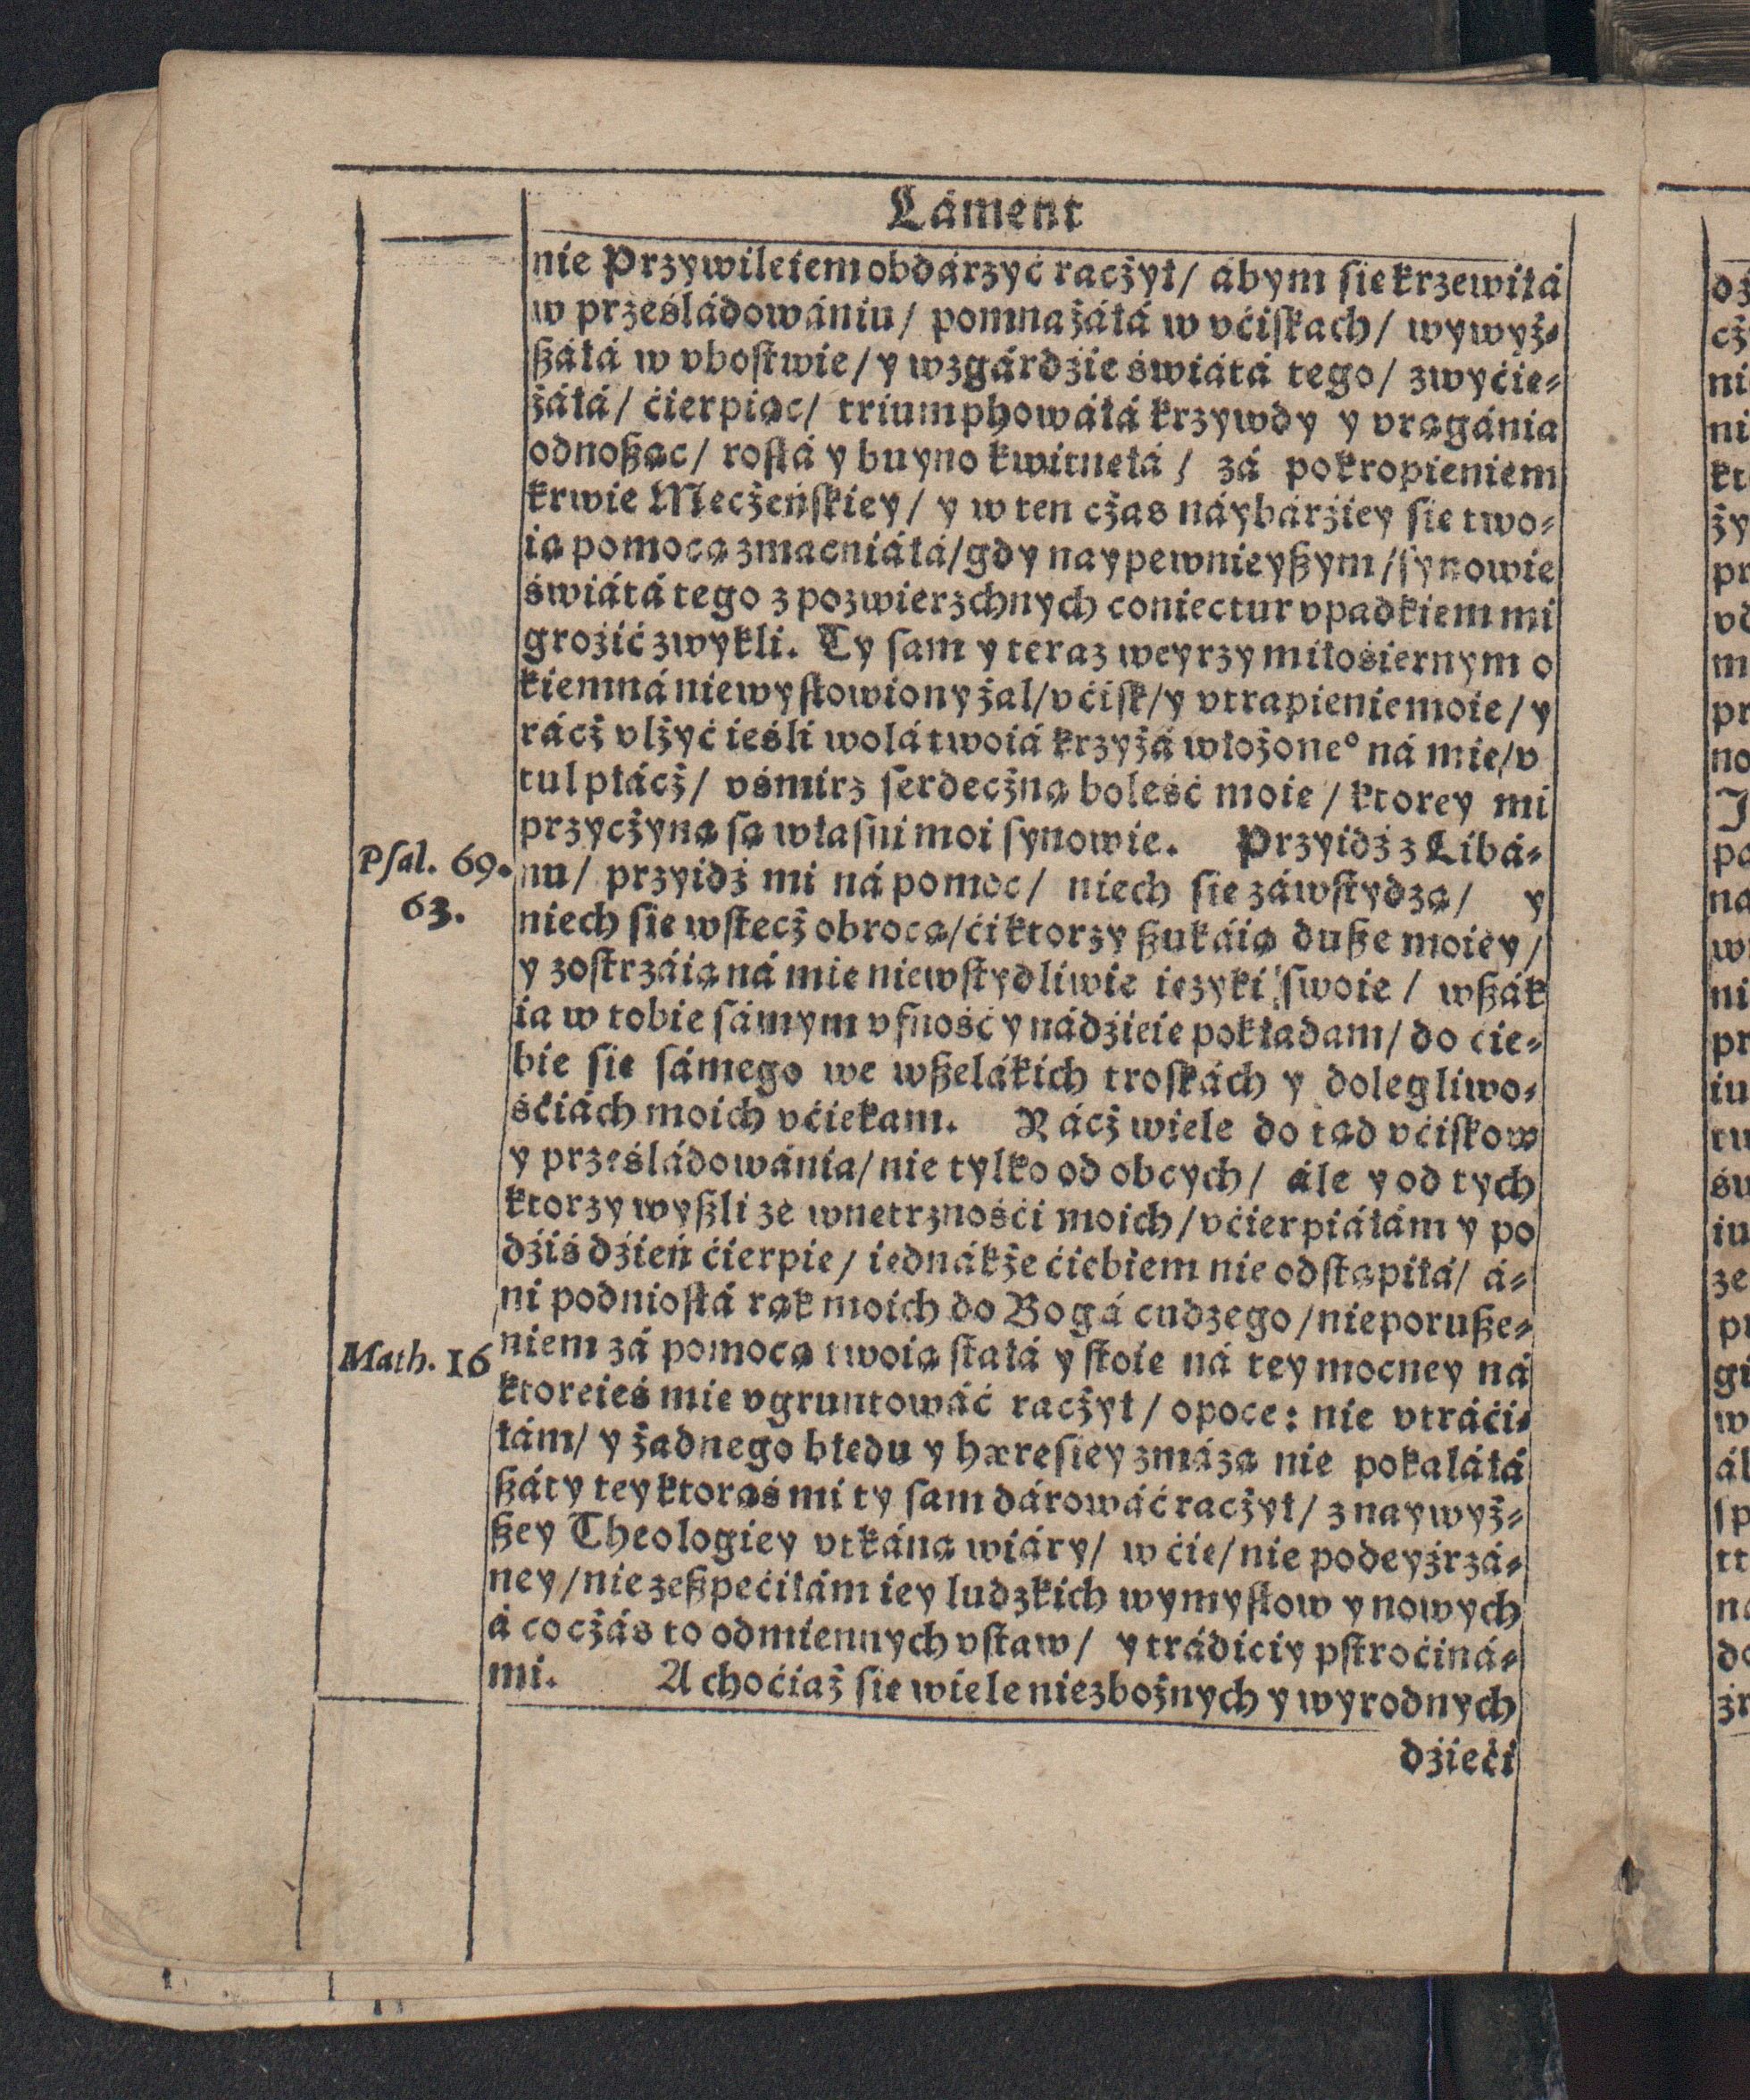 Láment
nie Przywileiem obdárzyć raczył/ ábym sie krzewiłá
w prześládowániu/ pomnażáłá w vćiſkach/ wywyż-
ßáłá w vboſtwie/ y wzgárdźie świátá tego/ zwyćie-
żáłá/ ćierpiąc/ triumphowáłá krzywdy y vrągánia
odnoßąc/ roſłá y buyno kwitnęłá/ zá pokropieniem
krwie Męczeńſkiey/ y w ten czas náybárźiey ſie two-
ią pomocą zmacniáłá/ gdy naypewnieyßym/ ſynowie
świátá tego z pozwierzchnych coniectur vpadkiem mi
groźić zwykli. Ty ſam y teraz weyrzy miłośiernym o
kiem ná niewyſłowiony żal/ vćiſk/ y vtrapienie moie/ y
rácż vlżyć ieśli wolá twoiá krzyżá włożone° ná mie/ v
tul płácż/ vśmirz ſerdeczną boleść moię/ ktorey mi
przyczyną ſą właſni moi ſynowie. Przyidź z Libá-
Pſal. 69.
nu/ przyidź mi ná pomoc/ niech ſie záwſtydzą/ y
63.
niech ſie wſtecż obrocą/ ći ktorzy ßukáią duße moiey/
y zoſtrzáią ná mie niewſtydliwie ięzyki ſwoie/ wßák
ia w tobie ſámym vfność y nádźieię pokładam/ do ćie-
bie ſie ſámego we wßelákich troſkách y dolegliwo-
śćiách moich vćiekam. Rácż wiele do tąd vćiſkow
y prześládowánia/ nie tylko od obcych/ ále y od tych
ktorzy wyßli ze wnetrznośći moich/ vćierpiáłám y po
dźiś dźień ćierpie/ iednákże ćiebiem nie odſtąpiłá/ á-
ni podnioſłá rąk moich do Bogá cudzego/ nieporuße-
Math. 16
niem zá pomocą twoią ſtałá y ſtoie ná tey mocney ná
ktoreieś mie vgruntowáć raczył/ opoce: nie vtráći-
łám/ y żadnego błędu y hæreſiey zmázą nie pokaláłá
ßáty tey ktorąś mi ty ſam dárowáć raczył/ z naywyż-
ßey Theologiey vtkáną wiáry/ w ćię/ nie podeyźrzá-
ney/ nie zeßpećiłám iey ludzkich wymyſłow y nowych
á coczás to odmiennych vſtaw/ y trádiciy pſtroćiná-
mi. A choćiaż ſie wiele niezbożnych y wyrodnych
dźieći